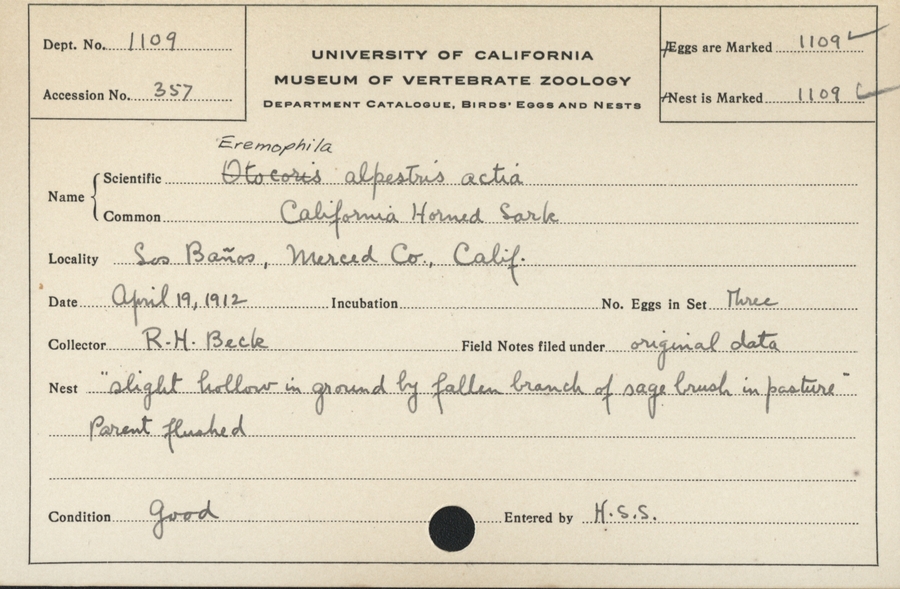 Dept. No. 1109
Accession No. 357
UNIVERSITY OF CALIFORNIA
MUSEUM OF VERTEBRATE ZOOLOGY
DEPARTMENT CATALOGUE, BIRDS' EGGS AND NESTS
Eggs are Marked 1109
Nest is Marked 1109
Eremophila
Name
Scientific Otocoris alpestris actia
Common California Horned Lark
Locality Los Baños, Merced Co., Calif.
Date April 19, 1912 Incubation No. Eggs in Set Three
Collector R.H. Beck Field Notes filed under original data
Nest "slight hollow in ground by fallen branch of sage brush in pasture"
Parent flushed
Condition Good Entered by H.S.S.